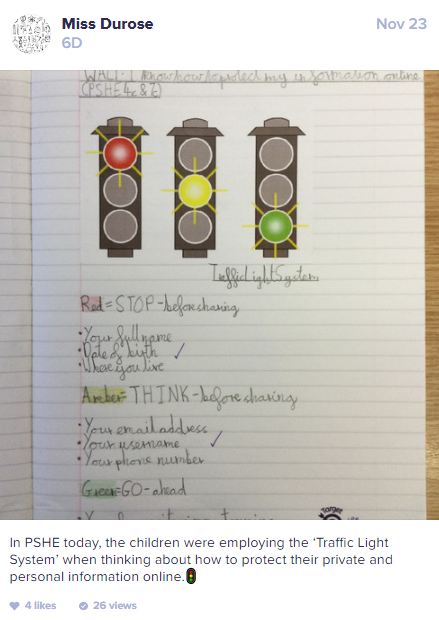 Miss Durose
Nov 23
6D
WALT: I know how to protect my information online
(PSHE 4c & 7)
Traffic Light System
Red = STOP - before sharing
• Your full name
• Date of birth
• Where you live
Amber= THINK - before sharing
• Your email address
• Your username
• Your phone number
Green=GO - ahead
Target
In PSHE today, the children were employing the ‘Traffic Light
System’ when thinking about how to protect their private and
personal information online.🚦
4 likes
26 views